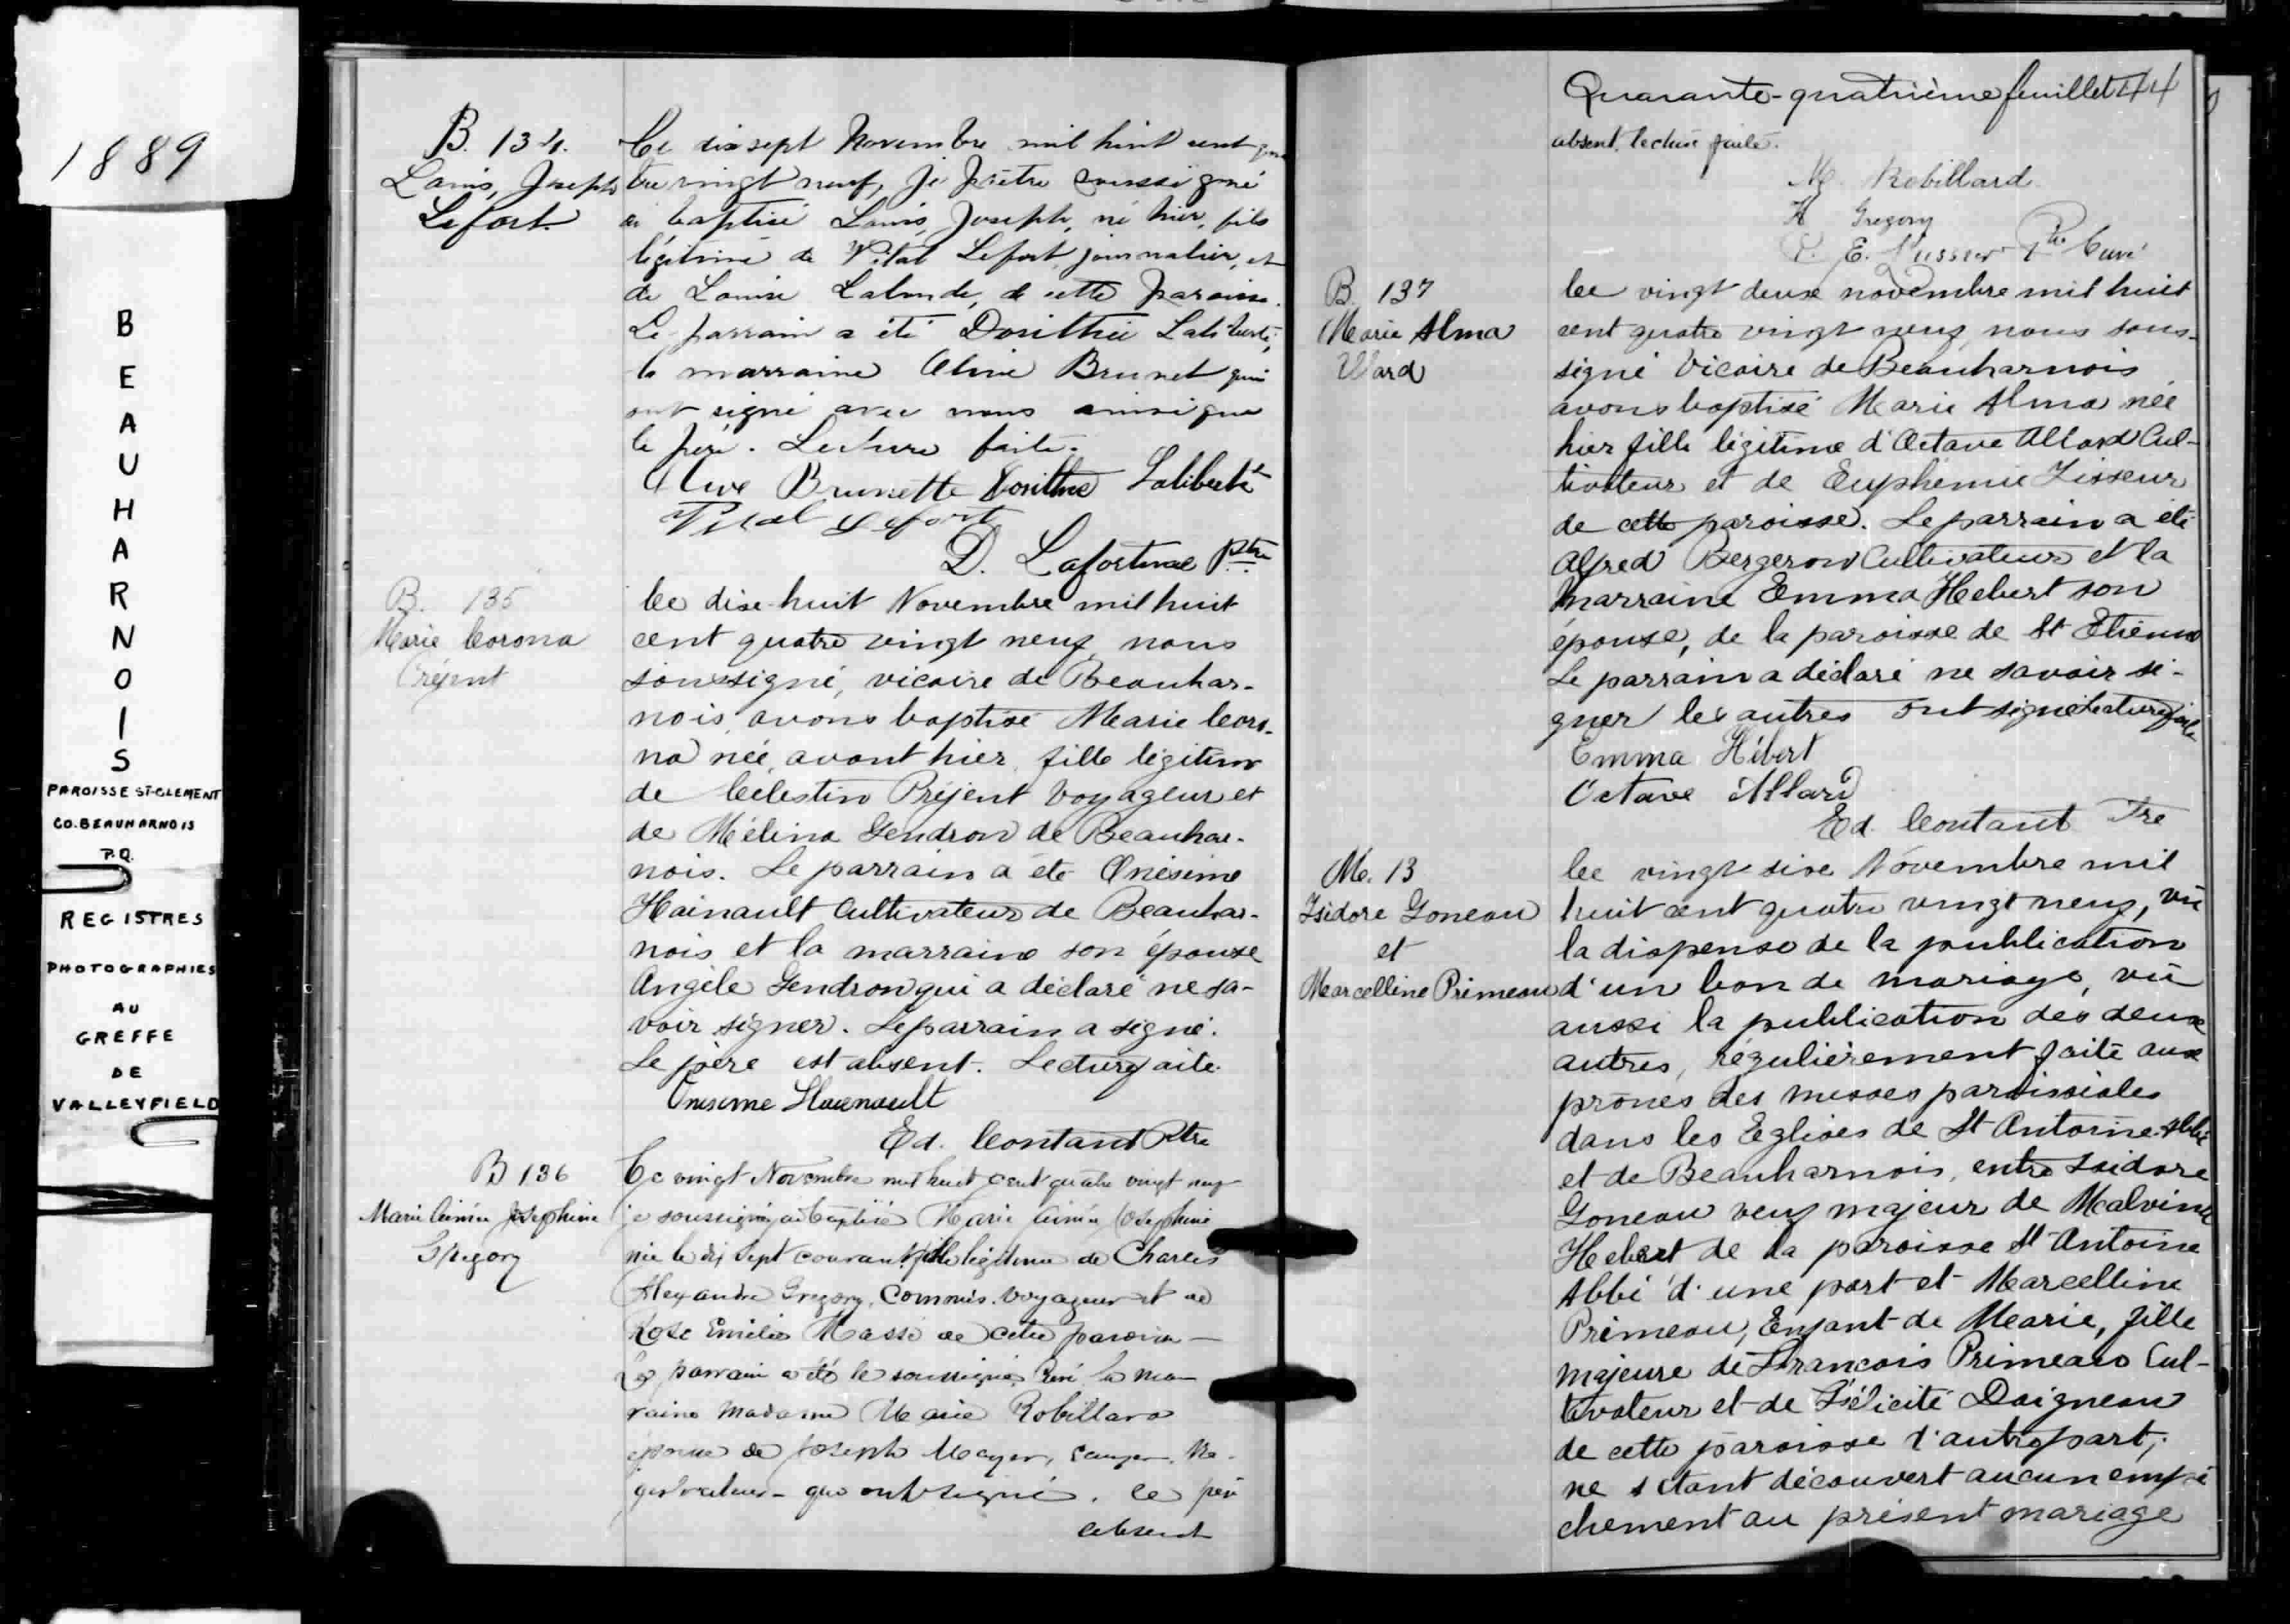 1889
B
E
A
U
H
A
R
N
O
I
S
PAROISSE ST-CLEMENT
CO. BEAUHARNOIS
P.Q.
REGISTRES
PHOTOGRAPHIES
AU
GREFFE
DE
VALLEYFIELD
B. 134.
Louis, Joseph
Lefort.
Ce dix sept Novembre mil huit cent qua
tre vingt neuf, je prêtre soussigné
ai baptisé Louis, Joseph, né hier, fils
légitime de Vital Lefort, journalier, et
de Louise Lalonde, de cette paroisse.
Le parrain a été Dorithée Laliberté,
la marraine Aline Brunet qui
ont signé avec nous ainsi que
le père. Lecture faite.
Brunette Dorithée Laliberté
Vital Lefort
D. Lafortune Ptre
B. 135
Marie Corona
Préjent
Ce dix-huit Novembre mil huit
cent quatre vingt neuf, nous
soussigné, vicaire de Beauhar-
nois, avons baptisé Marie Coro-
na née, avant hier, fille légitime
de Célestin Préjent Voyageur et
de Mélina Gendron de Beauhar-
nois. Le parrain a été Onésime
Hainault Cultivateur de Beauhar-
nois et la marraine son épouse
Angèle Gendron qui a déclaré ne sa-
voir signer. Le parrain a signé.
Le père est absent. Lecture faite.
Onesime Hainault
Ed. Contant Ptre
B 136
Marie Aimée Josephine
Gregory
Ce vingt Novembre mil huit cent quatre vingt neuf
je soussigné ai baptisé Marie Aimée Josephine
née le dix sept courant fille légitime de Charles
Alexandre Gregory, Commis. voyageur et de
Rose Emélie Massé de cette paroisse —
Le parrain a été le soussigné Curé la mar
raine Madame Marie Robillard
épouse de Joseph Mayer, Ne-
qui ont signé. le père
absent
Quarante-quatrième feuillet 44
absent. lecture faite.
M. Robillard
H Gregory
P. E. Lussier Ptre Curé
B. 137
Marie Alma
Ward
Ce vingt deux novembre mil huit
cent quatre vingt neuf, nous sous-
signé Vicaire de Beauharnois
avons baptisé Marie Alma née
hier fille légitime d'Octave Allard Cul-
tivateur et de Euphémie Tisseur
de cette paroisse. Le parrain a été
Alfred Bergeron Cultivateur et la
marraine Emma Hebert son
épouse, de la paroisse de St Etienne
Le parrain a déclaré ne savoir si-
gner les autres ont signé Lecture faite
Emma Hébert
Octave Allard
Ed. Contant Ptre
M. 13
Isidore Goneau
et
Marcelline Primeau
Ce vingt six Novembre mil
huit cent quatre vingt neuf, vû
la dispense de la publication
d'un ban de mariage, vû
aussi la publication des deux
autres, régulièrement faite aux
prônes des messes paroissiales
dans les Eglises de St Antoine Abbé
et de Beauharnois, entre Isidore
Goneau veuf majeur de Malvina
Hebert de la paroisse St Antoine
Abbé d'une part et Marcelline
Primeau, Enfant de Marie, fille
majeure de Francois Primeau Cul-
tivateur et de Félicité Daigneau
de cette paroisse d'autre part,
ne s'étant découvert aucun empê
chement au présent mariage